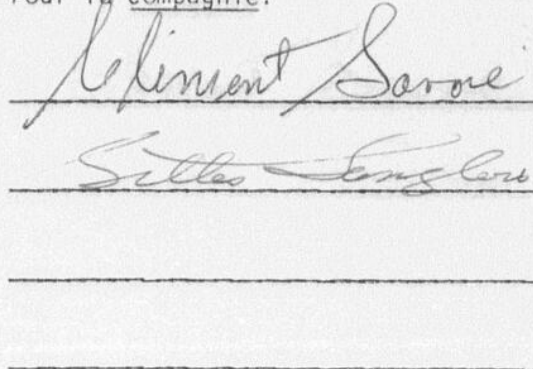 Pour la compagnie:
Clément Savoie
Gilles Langlois